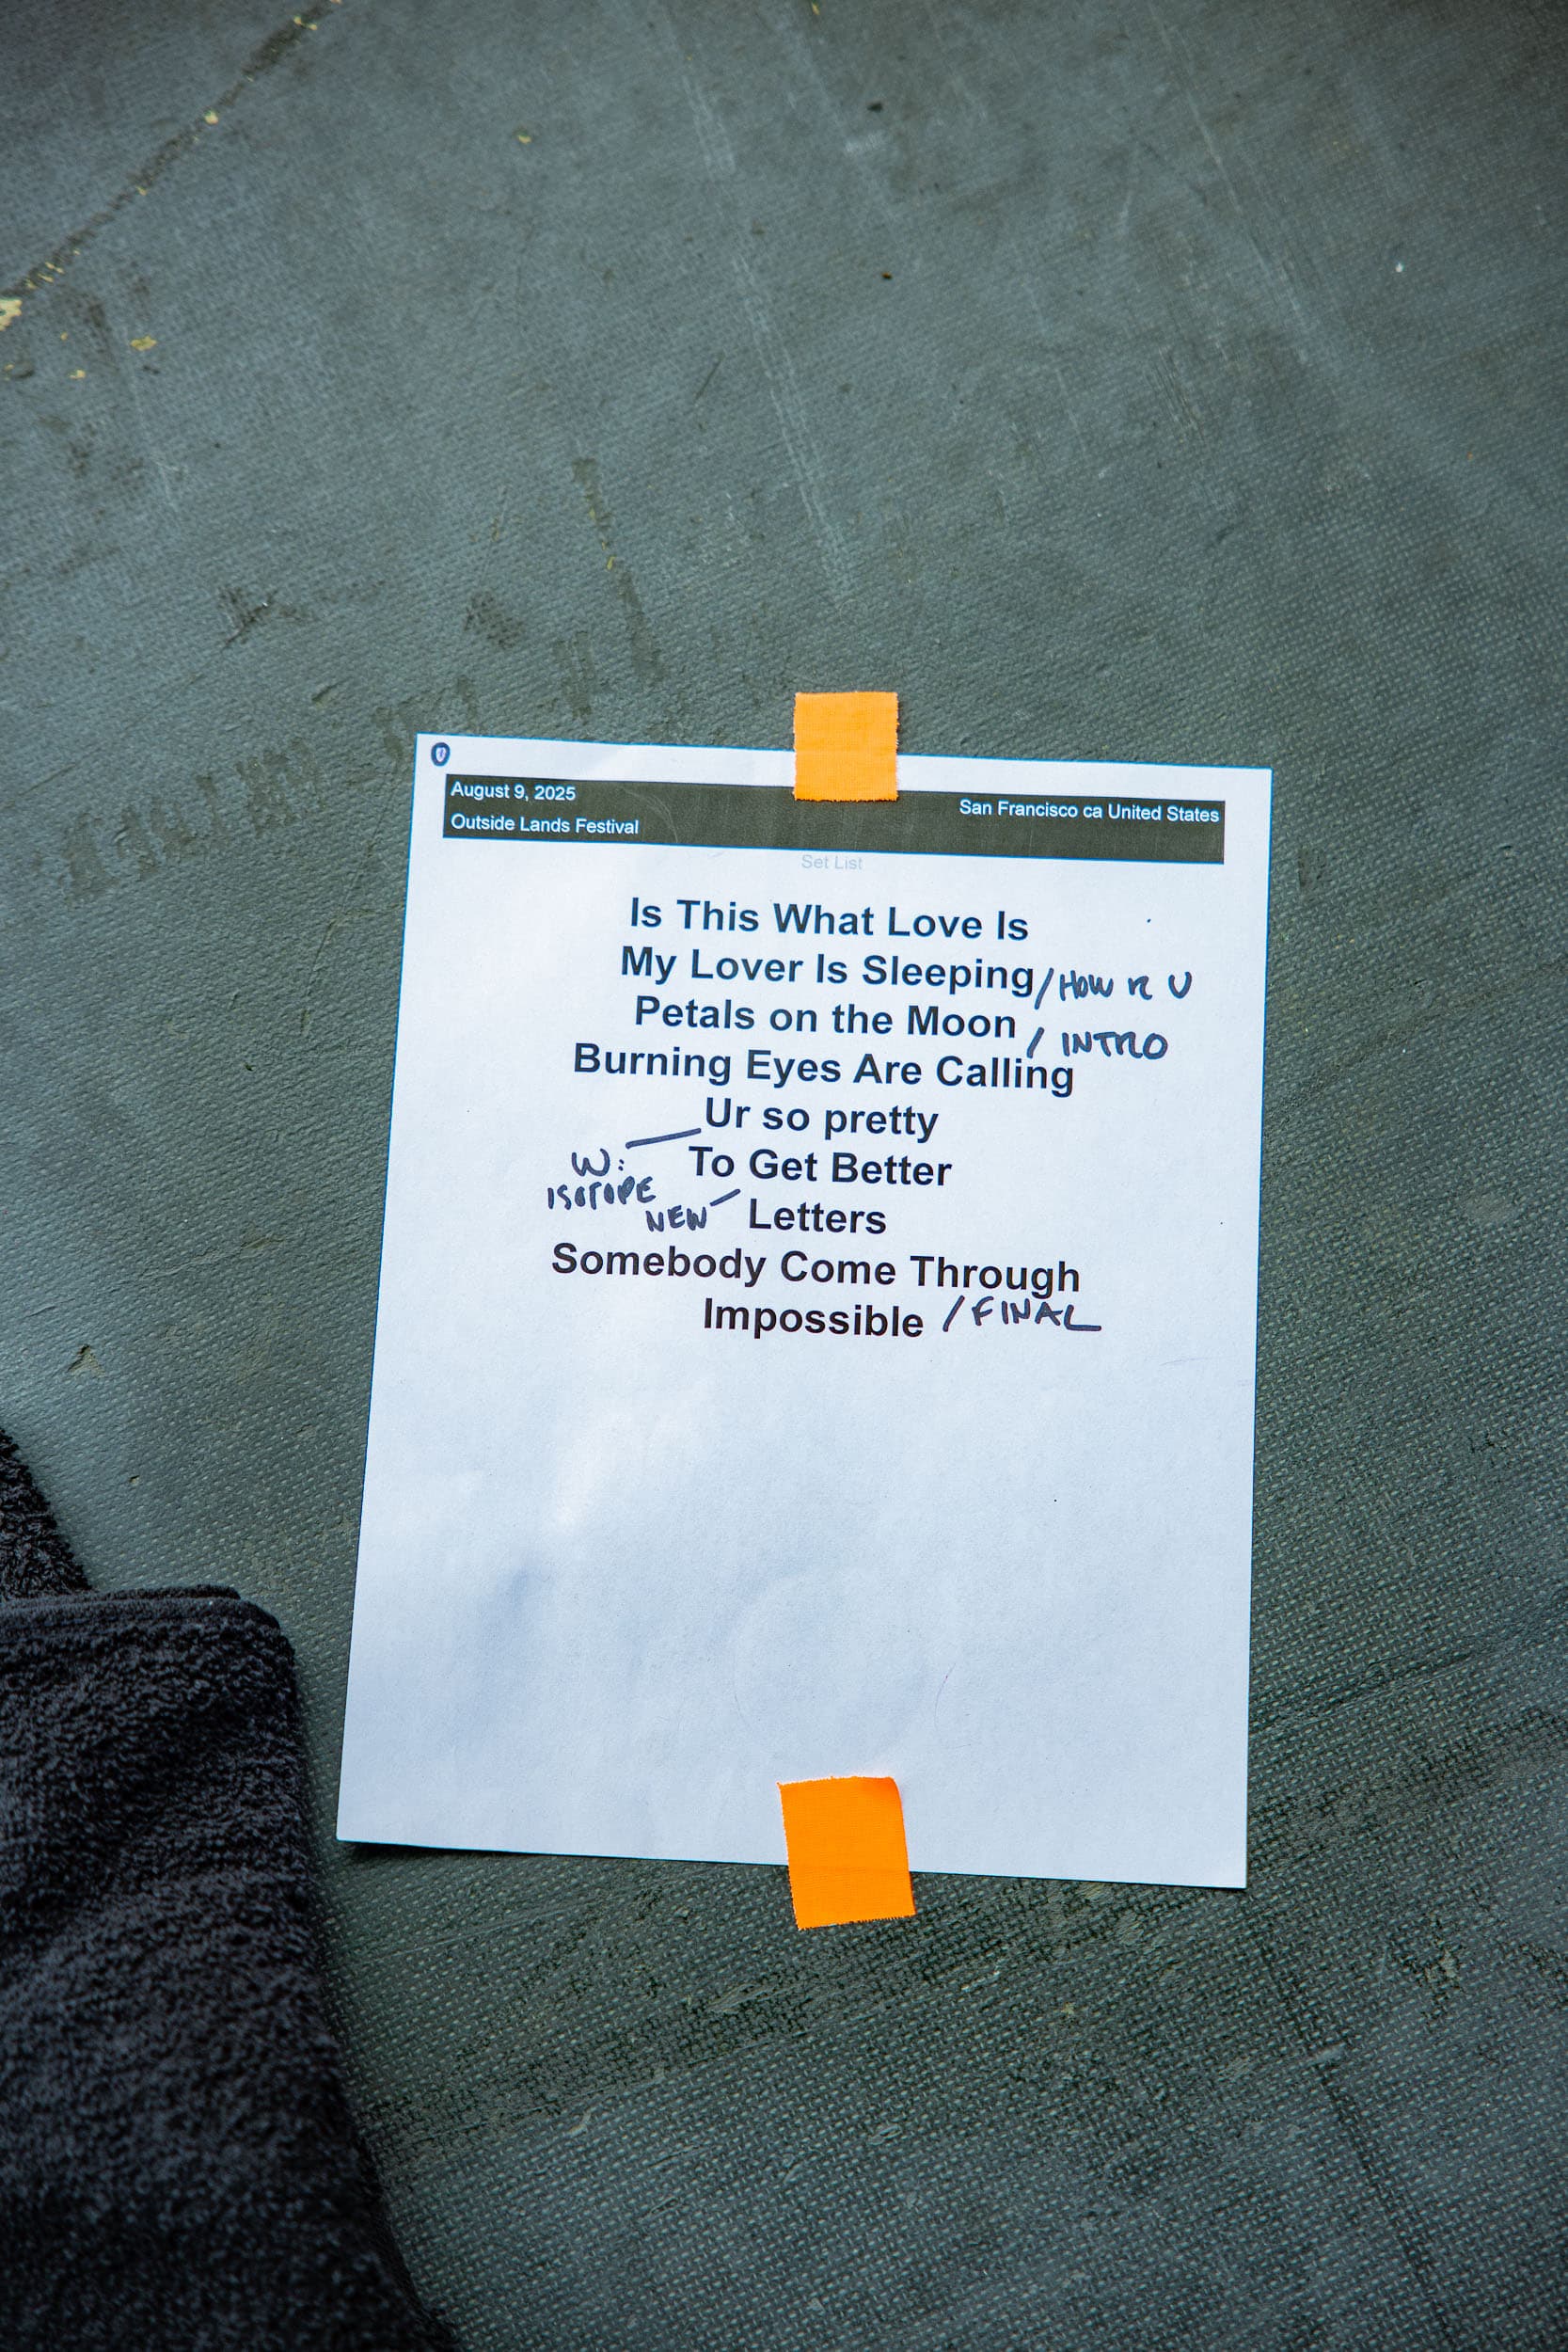 August 9, 2025
San Francisco ca United States
Outside Lands Festival
Set List
Is This What Love Is
My Lover Is Sleeping / HOW R U
Petals on the Moon / INTRO
Burning Eyes Are Calling
Ur so pretty
W: To Get Better
ISOTOPE
NEW Letters
Somebody Come Through
Impossible / FINAL